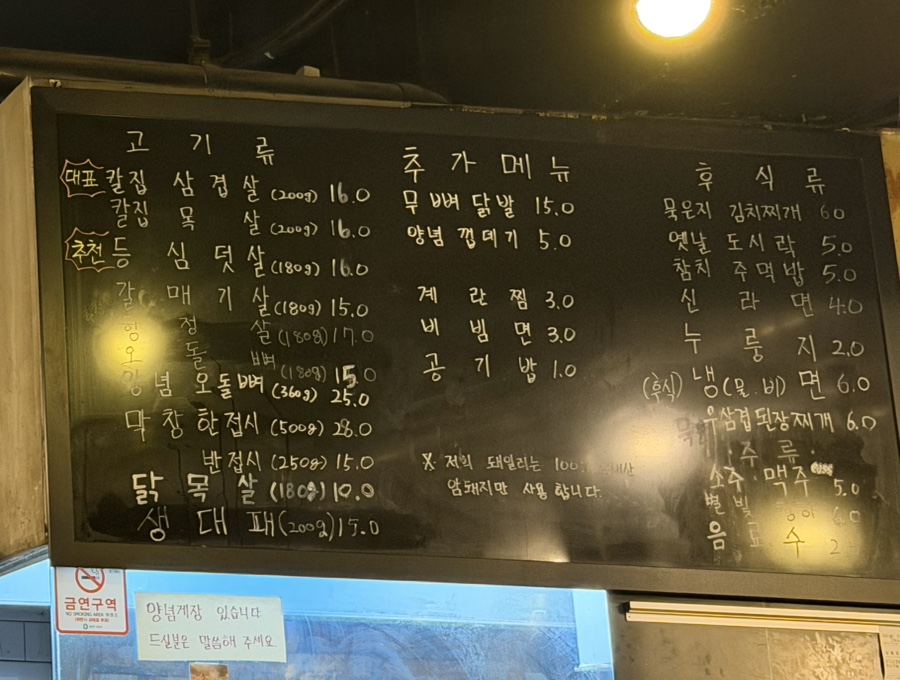 고기류
대표 칼집 삼겹살 (200g) 16.0
칼집 목살 (200g) 16.0
추천 등심덧살 (180g) 16.0
갈매기살 (180g) 15.0
항정살 (180g) 17.0
오돌뼈 (180g) 15.0
양념 오돌뼈 (360g) 25.0
막창 한접시 (500g) 28.0
반접시 (250g) 15.0
닭목살 (180g) 10.0
생대패 (200g) 15.0
추가메뉴
무뼈닭발 15.0
양념 껍데기 5.0
계란찜 3.0
비빔면 3.0
공기밥 1.0
※ 저희 돼일리는 100%
암돼지만 사용 합니다.
후식류
묵은지 김치찌개 6.0
옛날 도시락 5.0
참치 주먹밥 5.0
신라면 4.0
누룽지 2.0
(후식) 냉(물.비)면 6.0
우삼겹된장찌개 6.0
주류
소주·맥주 5.0
별빛 6.0
음료수 2
금연구역
NO SMOKING AREA
양념게장 있습니다
드실분은 말씀해 주세요